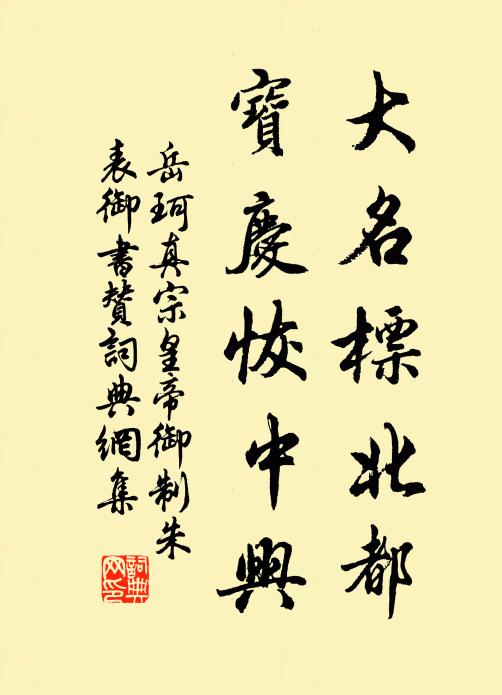 大名標北都
寶慶恢中興
岳珂真宗皇帝御制朱
表御書贊詞典網集
詞典網印